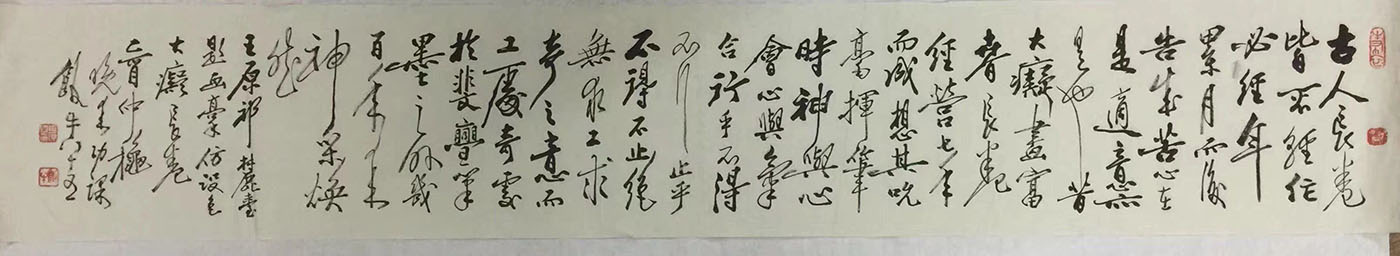 古人長卷
皆不輕作
必經年
累月而後
告成苦心在
是適意亦
是也昔
大癡畫富
春長卷
經營七年
而成想其吮
毫揮筆
時神與心
會心與氣
合行乎不得
不行止乎
不得不止絕
無求工求
奇之意而
工處奇處
於斐亹筆
墨之外幾
百年來
神采煥
然
王原祁麓臺
題畫稿仿設色
大癡長卷
己亥仲穐
晚來功課